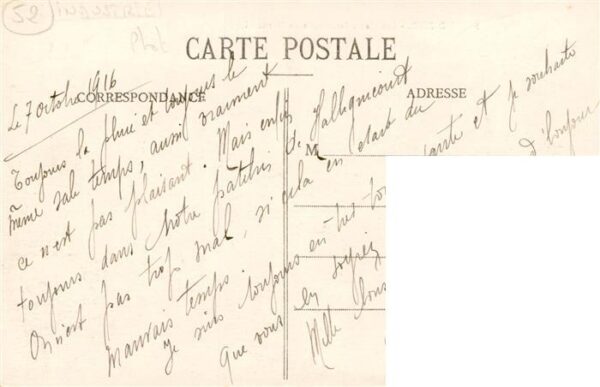 52
INDUSTRIE
CARTE POSTALE
CORRESPONDANCE
ADRESSE
M
Le 7 octobre 1916
Toujours la pluie et toujours le
même sale temps, aussi vraiment
ce n'est pas plaisant. Mais enfin
toujours dans notre patelin d'Hallignicourt
On n'est pas trop mal, si cela en était du
Mauvais temps.
Je suis toujours en très bo
ante et je souhaite
Que vous y soyez
Mille bons
d'bonjour